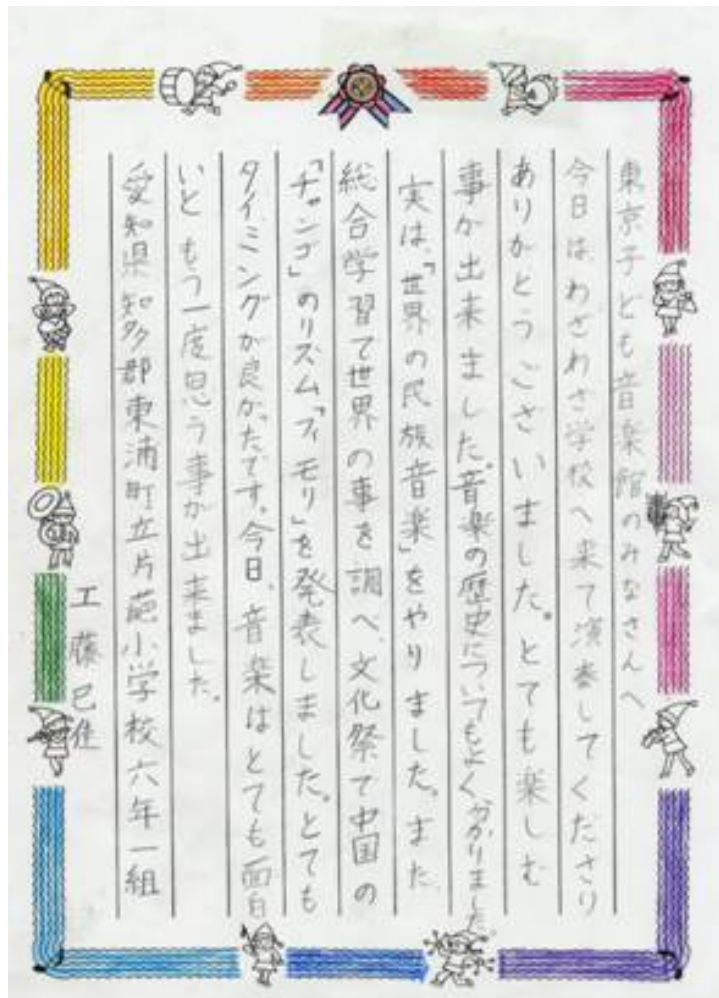 東京子ども音楽館のみなさんへ
今日は、わざわざ学校へ来て演奏してくださり
ありがとうございました。とても楽しむ
事が出来ました。音楽の歴史についてもよく分かりました。
実は、「世界の民族音楽」をやりました。また、
総合学習で世界の事を調べ、文化祭で中国の
「チャンゴ」のリズム「フィモリ」を発表しました。とても
タイミングが良かったです。今日、音楽はとても面白
いともう一度思う事が出来ました。
愛知県知多郡東浦町立片葩小学校六年一組
工藤巳佳